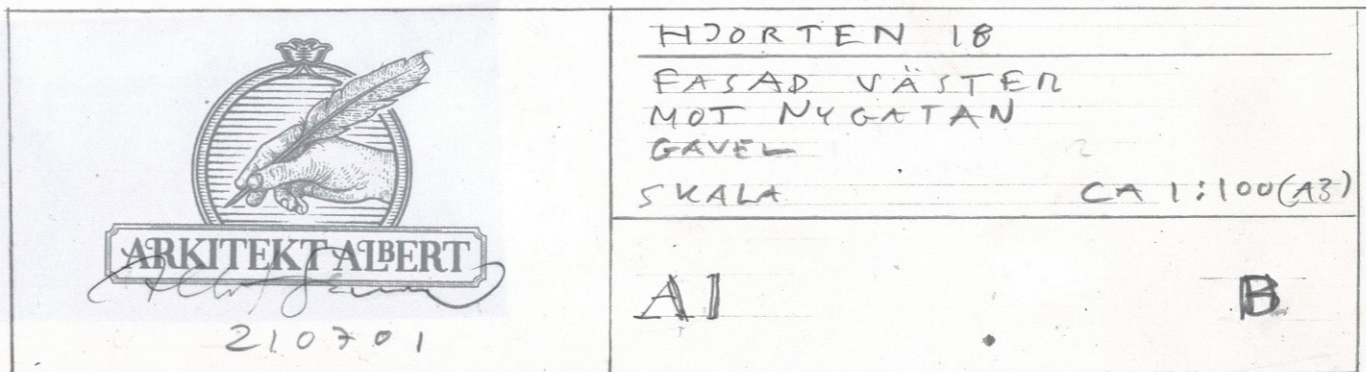 ARKITEKT ALBERT
210701
HJORTEN 18
FASAD VÄSTER
MOT NYGATAN
GAVEL
SKALA CA 1:100(A3)
A1 B